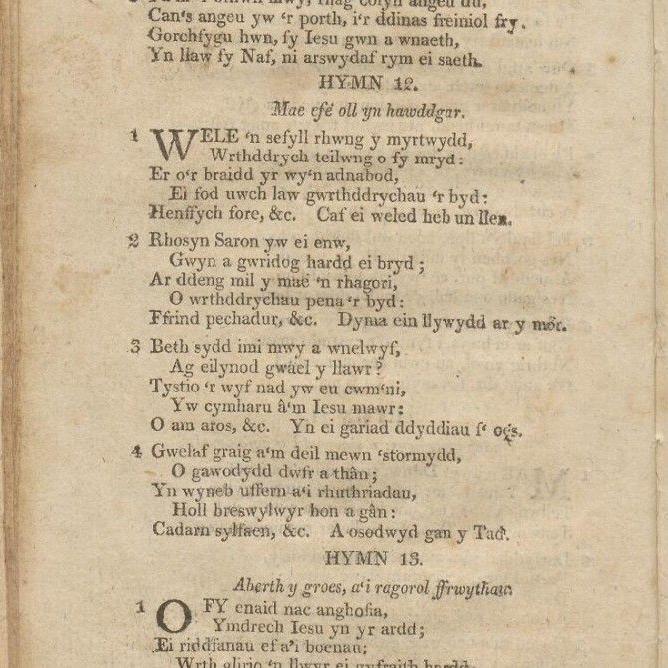 Can's angeu yw 'r porth, i'r ddinas freiniol fry.
Gorchfygu hwn, fy Iesu gwn a wnaeth,
Yn llaw fy Naf, ni arswydaf rym ei saeth.
HYMN 12.
Mae efe oll yn hawddgar.
1 WELE 'n sefyll rhwng y myrtwydd,
Wrthddrych teilwng o fy mryd:
Er o'r braidd yr wy'n adnabod,
Ei fod uwch law gwrthddrychau 'r byd:
Henffych fore, &c. Caf ei weled heb un llen.
2 Rhosyn Saron yw ei enw,
Gwyn a gwridog hardd ei bryd;
Ar ddeng mil y mae 'n rhagori,
O wrthddrychau pena 'r byd:
Ffrind pechadur, &c. Dyma ein llywydd ar y môr.
3 Beth sydd imi mwy a wnelwyf,
Ag eilynod gwael y llawr?
Tystio 'r wyf nad yw eu cwm'ni,
Yw cymharu â'm Iesu mawr:
O am aros, &c. Yn ei gariad ddyddiau f' oes.
4 Gwelaf graig a'm deil mewn 'stormydd,
O gawodydd dwfr a thân;
Yn wyneb uffern a'i rhuthriadau,
Holl breswylwyr hon a gân:
Cadarn sylfaen, &c. A osodwyd gan y Tad.
HYMN 13.
Aberth y groes, a'i ragorol ffrwythau.
1 O FY enaid nac anghofia,
Ymdrech Iesu yn yr ardd;
Ei riddfanau ef a'i boenau;
Wrth glirio 'n llwyr ei gyfraith hardd